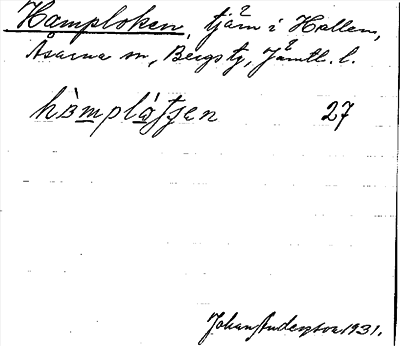 Hamploken, tjärn i Hallen,
Åsarna sn, Bergs tg, Jämtl. l.
hàmplátsen 27
Johan Anderson 1931.